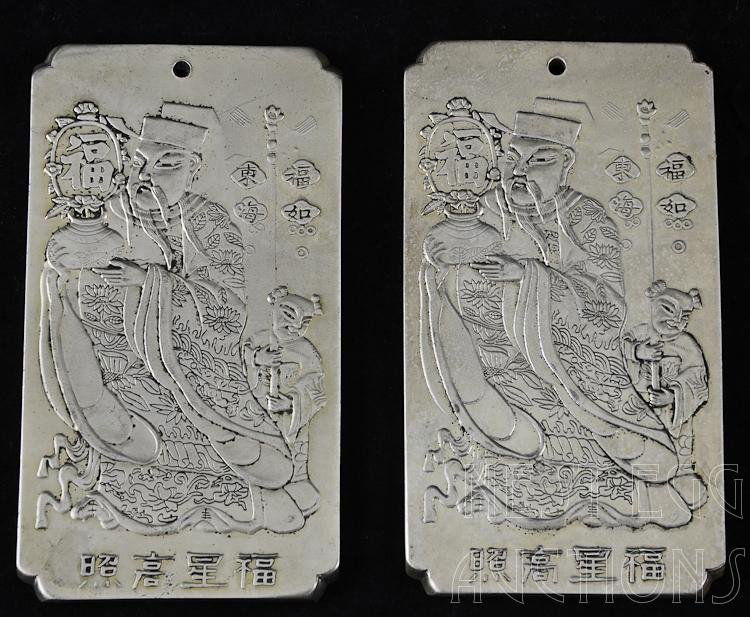 福
福如
東海
福星高照
福
福如
東海
福星高照
AUCTIONS